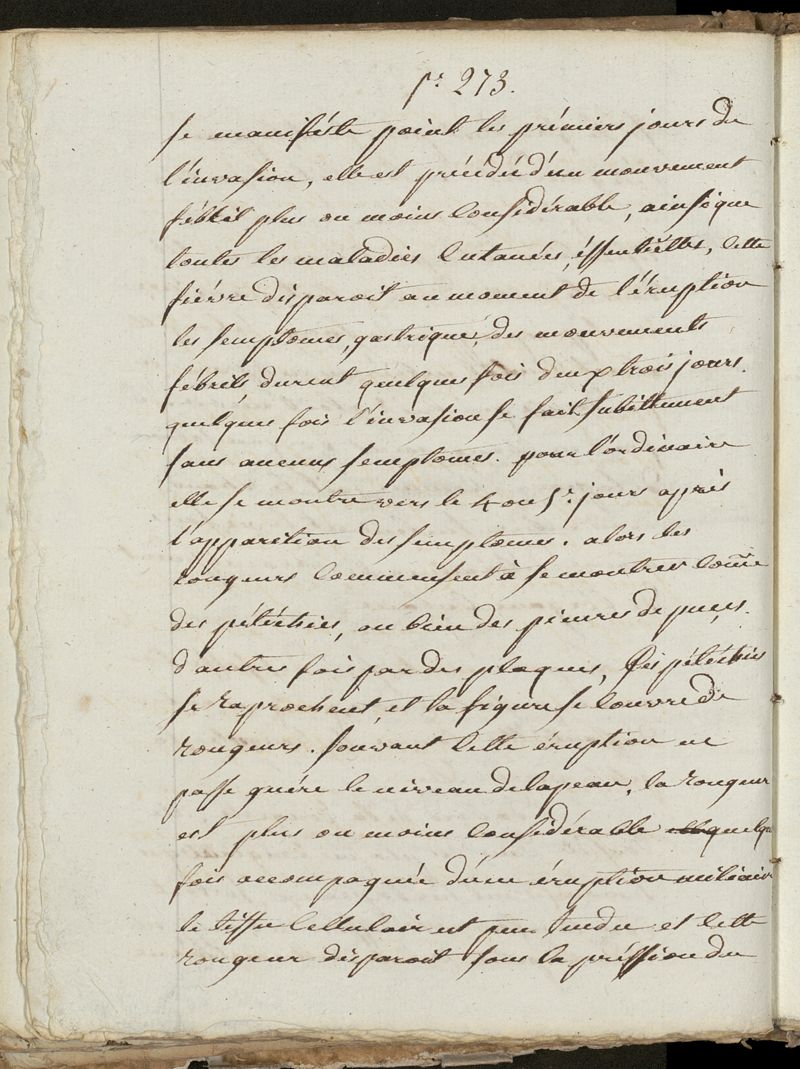 pr. 273.
se manifeste point les prémiers jours de
l'invasion, elle est précédée d'un mouvement
fébril plus ou moins considérable, ainsi que
toutes les maladies cutanées, éssentielles, cette
fiévre disparoit au moment de l'éruption
les semptomes, gastrique, des mouvements
fébrils durent quelques fois deux trois jours.
quelques fois l'invasion se fait subittement
sans aucuns semptomes. pour l'ordinaire
elle se montre vers le 4 ou 5e. jours aprés
l'apparition des semptomes. alors les
rougeurs commensent à se montrer come
des pétéchies, ou bien des piqures de puçes.
d'autres fois par des plaques, Ces pétéchies
se raprochent, et la figure se couvre de
rougeurs. souvant cette éruption ne
passe guére le niveau de la peau, la rougeur
est plus ou moins considérable quelque
fois accompagnée d'une éruption miliaire
le tissu cellulair est peu tendu et cette
rougeur disparoit sous la préssion du